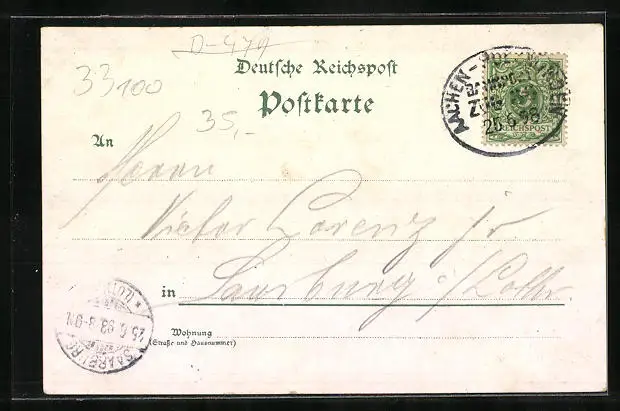 D-479
33100
Deutsche Reichspost
Postkarte
35,-
AACHEN -
BAHNPOST
ZUG
25 6 98
REICHSPOST
An
Herrn
Victor Lorenz jr
in Saarburg i/Lothr.
SAARBURG
25. 6. 98 8-9 N
* (LOTHR
Wohnung
(Straße und Hausnummer)